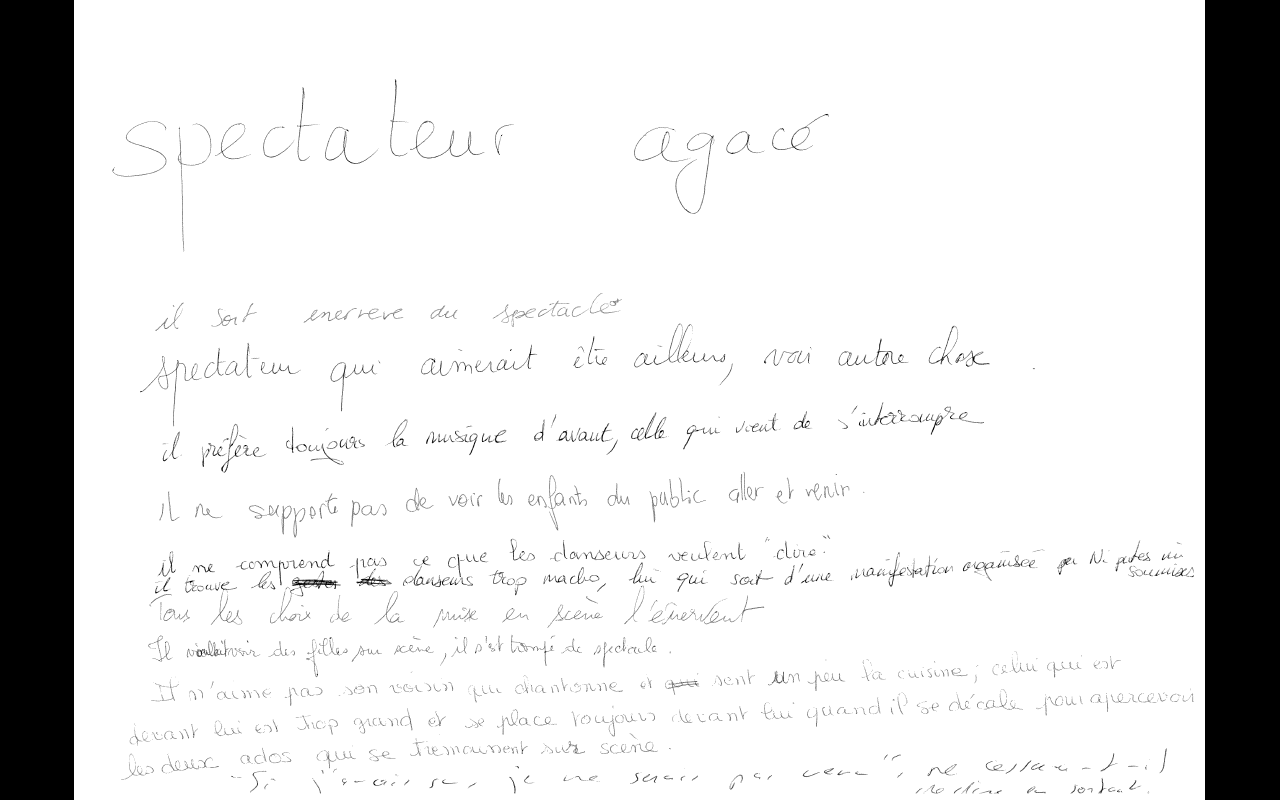 spectateur agacé
il sort enerveve du spectacle
spectateur qui aimerait être ailleurs, voir autre chose
il préfère toujours la musique d'avant, celle qui vient de s'interrompre
il ne supporte pas de voir les enfants du public aller et venir.
il ne comprend pas ce que les danseurs veulent "dire"
il trouve les danseurs trop macho, lui qui sort d'une manifestation organisée par Ni putes ni soumises
Tous les choix de la mise en scène l'énervent
Il voir des filles sur scène, il s'est trompé de spectacle.
Il n'aime pas son voisin qui chantonne et sent un peu la cuisine; celui qui est
devant lui est trop grand et se place toujours devant lui quand il se décale pour apercevoir
les deux ados qui se trémoussent sur scène.
"Si j'avais su, je ne serais pas venu", ne cessera-t-il
de dire en sortant.